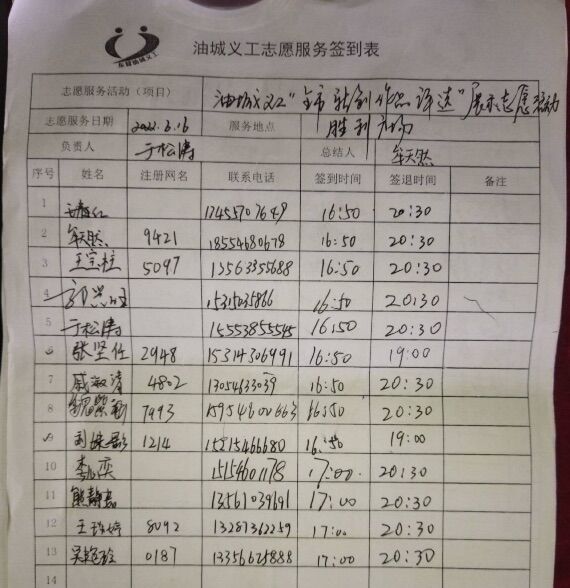 东营油城义工
油城义工志愿服务签到表
志愿服务活动（项目） 油城义工"全市 作品评选"展示志愿活动
志愿服务日期 2022.6.16 服务地点 胜利广场
负责人 于松涛 总结人 牟天然
序号 姓名 注册网名 联系电话 签到时间 签退时间 备注
1 16:50 20:30
2 牟天然 9421 18554680678 16:50 20:30
3 王宗柱 5097 13563855688 16:50 20:30
4 15315035866 16:50 20:30
5 于松涛 15553855545 16:50 20:30
6 张坚任 2948 15314306991 16:50 19:00
7 戚 4802 13054633039 16:50 20:30
8 7993 15954600663 16:50 20:30
9 1214 15215466680 16:50 19:00
10 李 15154601178 17:00 20:30
11 熊静 13561039691 17:00 20:30
12 王 婷 8092 13287362259 17:00 20:30
13 吴 玲 0187 13356625888 17:00 20:30
14